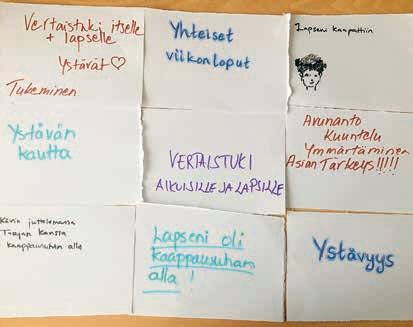 Vertaistuki itselle
+ lapselle
Ystävät
Tukeminen
Yhteiset
viikonloput
Lapseni kaapattiin
Ystävän
kautta
VERTAISTUKI
AIKUISILLE JA LAPSILLE
Avunanto
Kuuntelu
Ymmärtäminen
Asian Tärkeys!!!!!
Kävin juttelemassa
Tarjan kanssa
kaappausuhan alla
Lapseni oli
kaappausuhan
alla !
Ystävyys